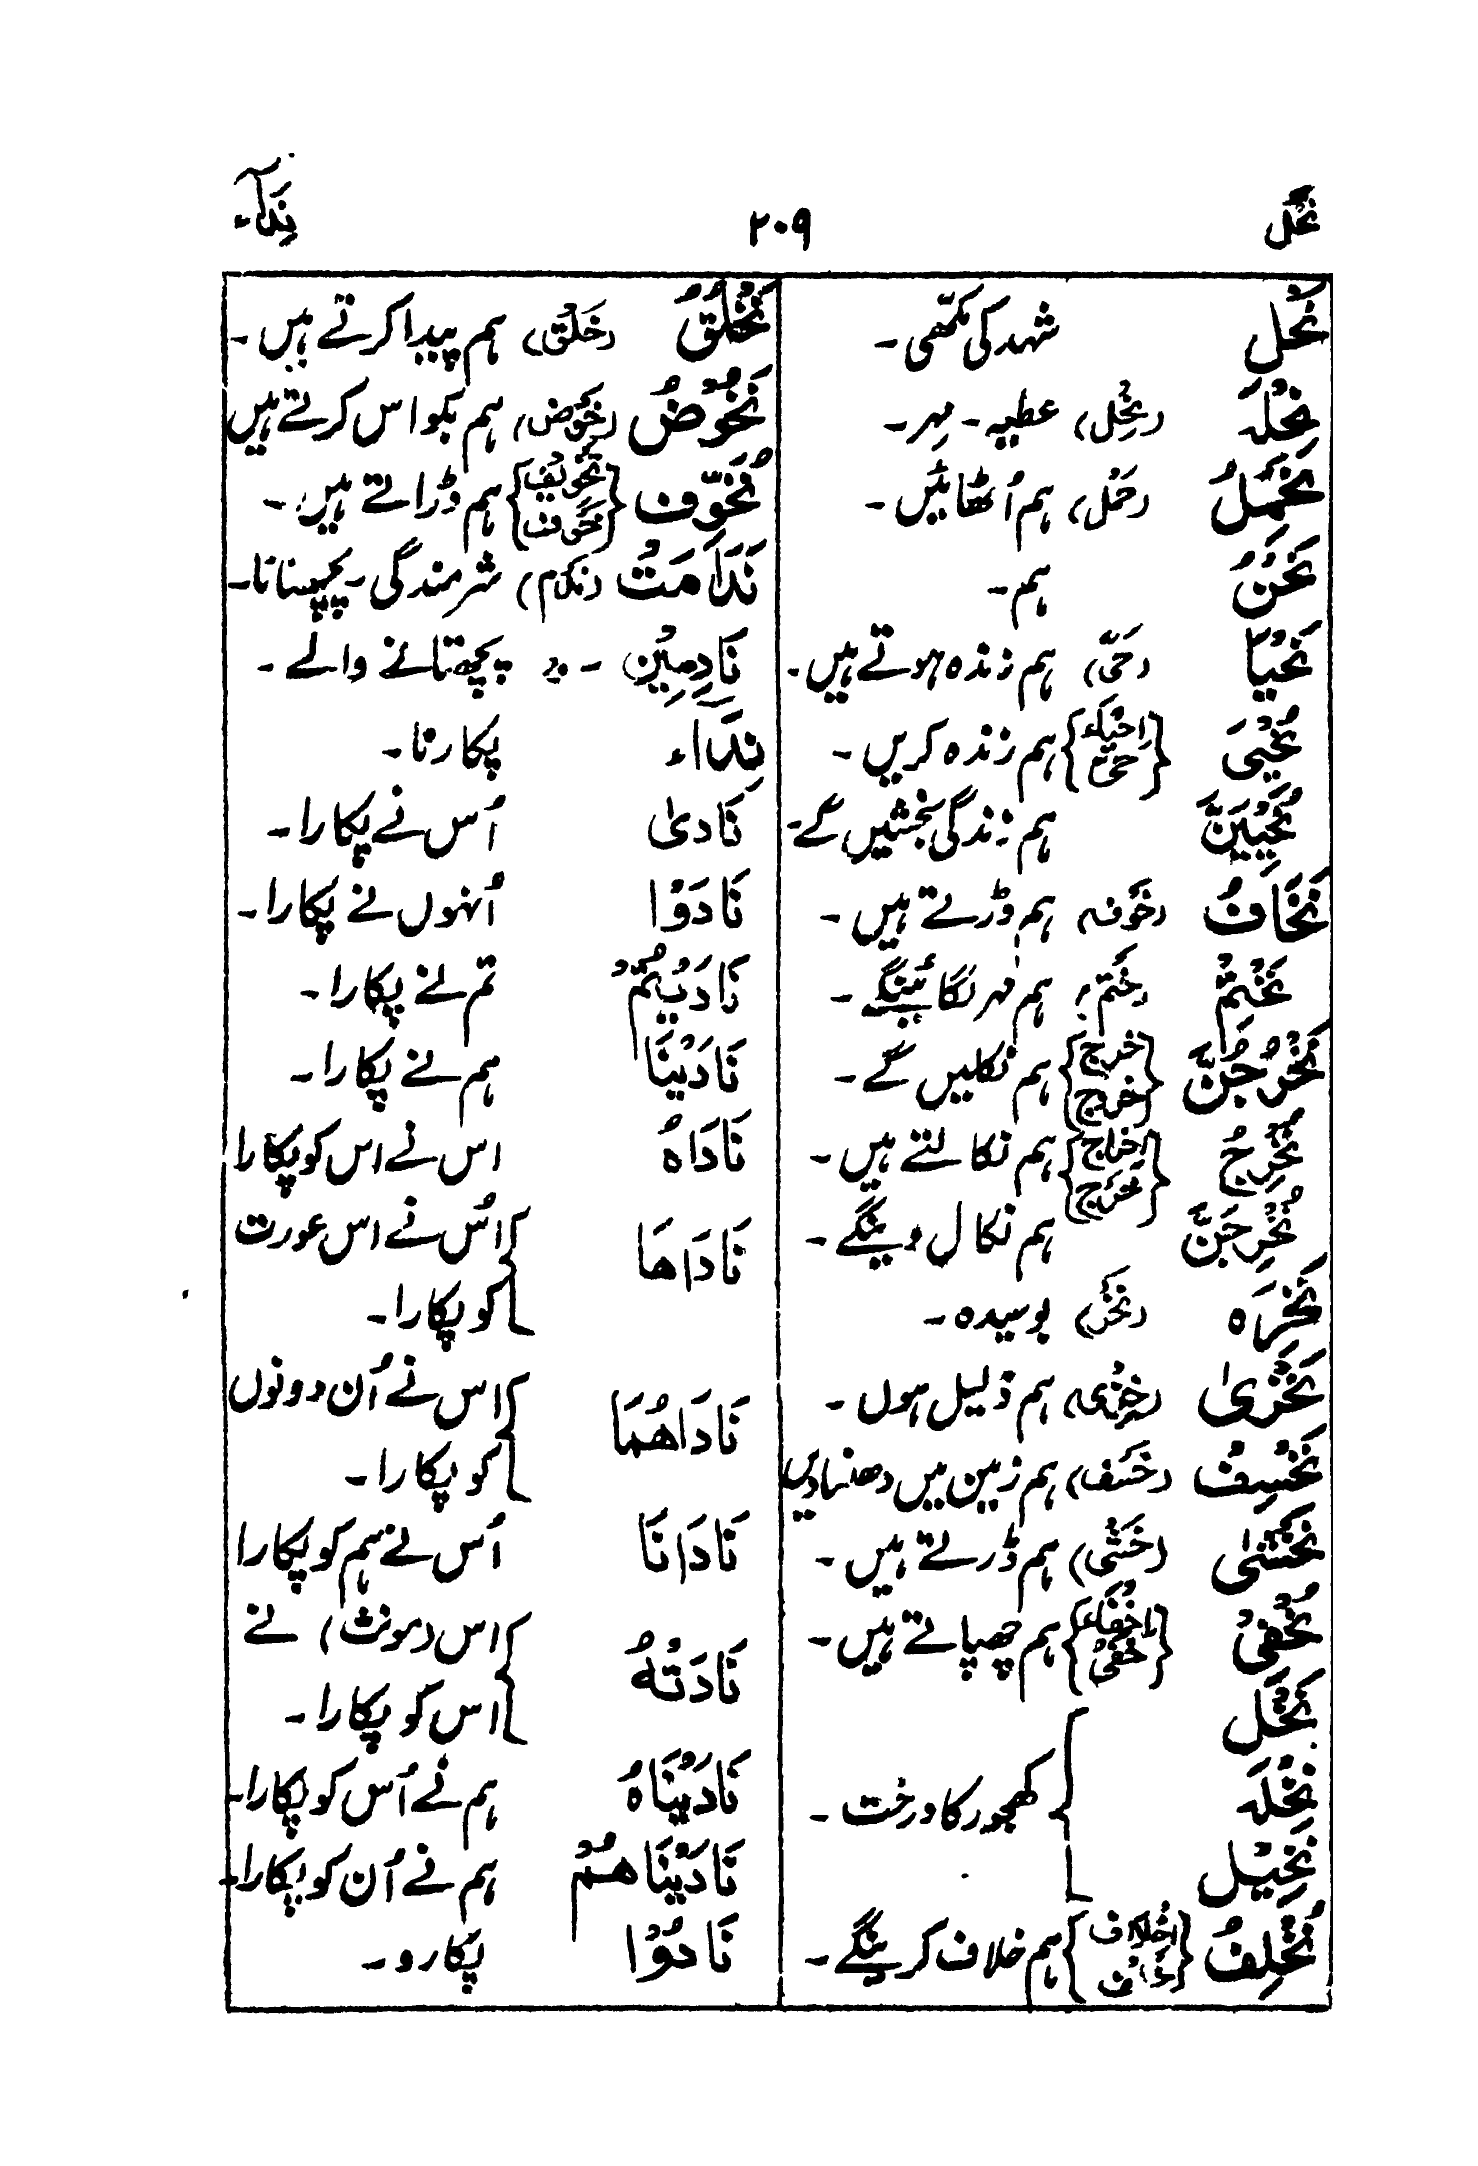 نَحْل
۲۰۹
نِدَآء
نَحْل شہد کی مکھی ۔
نِحْلَہ (نِحْل) عطیہ ۔ مہر ۔
نَحْمِلُ (حَمْل) ہم اُٹھائیں ۔
نَحْنُ ہم ۔
نَحْیَا (حَیّ) ہم زندہ ہوتے ہیں ۔
نُحْیِیَ {اِحْیَاء حَیّ} ہم زندہ کریں ۔
نُحْیِیَنَّ ہم زندگی بخشیں گے ۔
نَخَافُ (خَوْف) ہم ڈرتے ہیں ۔
نَخْتِمُ (خَتْم) ہم مہر لگائینگے ۔
نَخْرُجَنَّ {خرج خروج} ہم نکلیں گے ۔
نُخْرِجُ {اِخراج خرج} ہم نکالتے ہیں ۔
نُخْرِجَنَّ ہم نکال دینگے ۔
نَخِرَہ (نَخْر) بوسیدہ ۔
نَخْزیٰ (خِزْی) ہم ذلیل ہوں ۔
نَخْسِفُ (خَسْف) ہم زمین میں دھنسا دیں
نَخْشیٰ (خَشْی) ہم ڈرتے ہیں ۔
نُخْفِیْ {اِخْفَاء خَفْیْ} ہم چھپاتے ہیں ۔
نَخْل
نَخْلَہ کھجور کا درخت ۔
نَخِیْل
نُخْلِفُ {اِخْلَاف خلف} ہم خلاف کرینگے ۔
نَخْلُقُ (خَلْق) ہم پیدا کرتے ہیں ۔
نَخُوْضُ (خَوْض) ہم بکواس کرتے ہیں
نُخَوِّفُ {تخویف خوف} ہم ڈراتے ہیں ۔
نَدَامَتُ (نَدَم) شرمندگی ۔ پچھتانا ۔
نَادِمِیْن ۔ 〃 پچھتانے والے ۔
نِدَاء پکارنا ۔
نَادیٰ اُس نے پکارا ۔
نَادَوْا اُنہوں نے پکارا ۔
نَادَیْتُمْ تم نے پکارا ۔
نَادَیْنَا ہم نے پکارا ۔
نَادَاہُ اس نے اس کو پکارا
نَادَاھَا اُس نے اس عورت
کو پکارا ۔
نَادَاھُمَا اس نے اُن دونوں
کو پکارا ۔
نَادَانَا اُس نے ہم کو پکارا
نَادَتْہُ اس (مونث) نے
اس کو پکارا ۔
نَادَیْنَاہُ ہم نے اُس کو پکارا ۔
نَادَیْنَاھُمْ ہم نے اُن کو پکارا ۔
نَادُوْا پکارو ۔